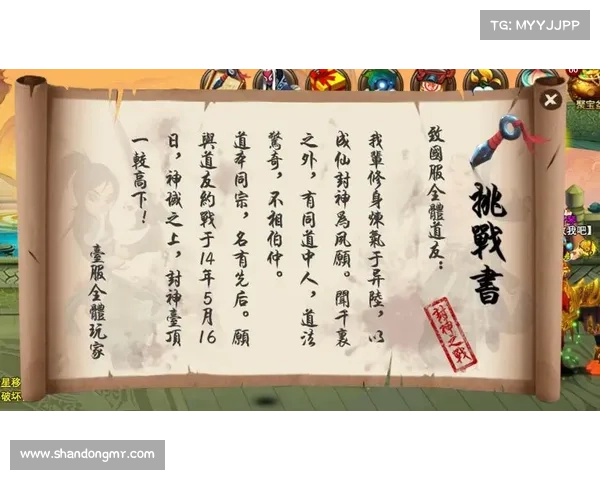 TG: MYYJJPP
聚宝盆
挑戰書
封神之戰
致國服全體道友：
我輩修身煉氣于异陸，以
成仙封神為夙願。聞千裏
之外，有同道中人，道法
驚奇，不相伯仲。
道本同宗，名有先后。願
與道友約戰于14年5月16
日，神域之上，封神臺頂
一較高下！
臺服全體玩家
我吧】
星移
破坏
www.shandongmr.com